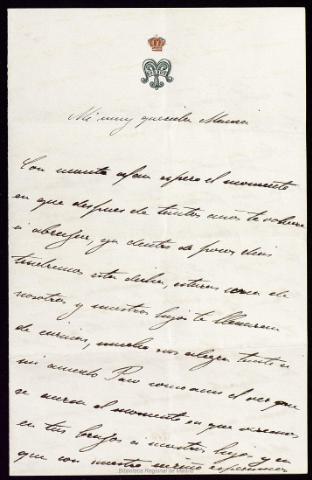 Mi muy querida Mamá
Con cuanto afan espero el momento
en que despues de tantos años te volveré
a abrazar, ya dentro de pocos dias
tendremos esta dicha, estaras cerca de
nosotros y nuestros hijos te llenaran
de caricias, mucho nos alegra tanto a
mi como a Paco como ami el ver que
se acerca el momento en que veremos
en tus brazos a nuestros hijos y en
que con nuestro cariño
Biblioteca Regional de Madrid